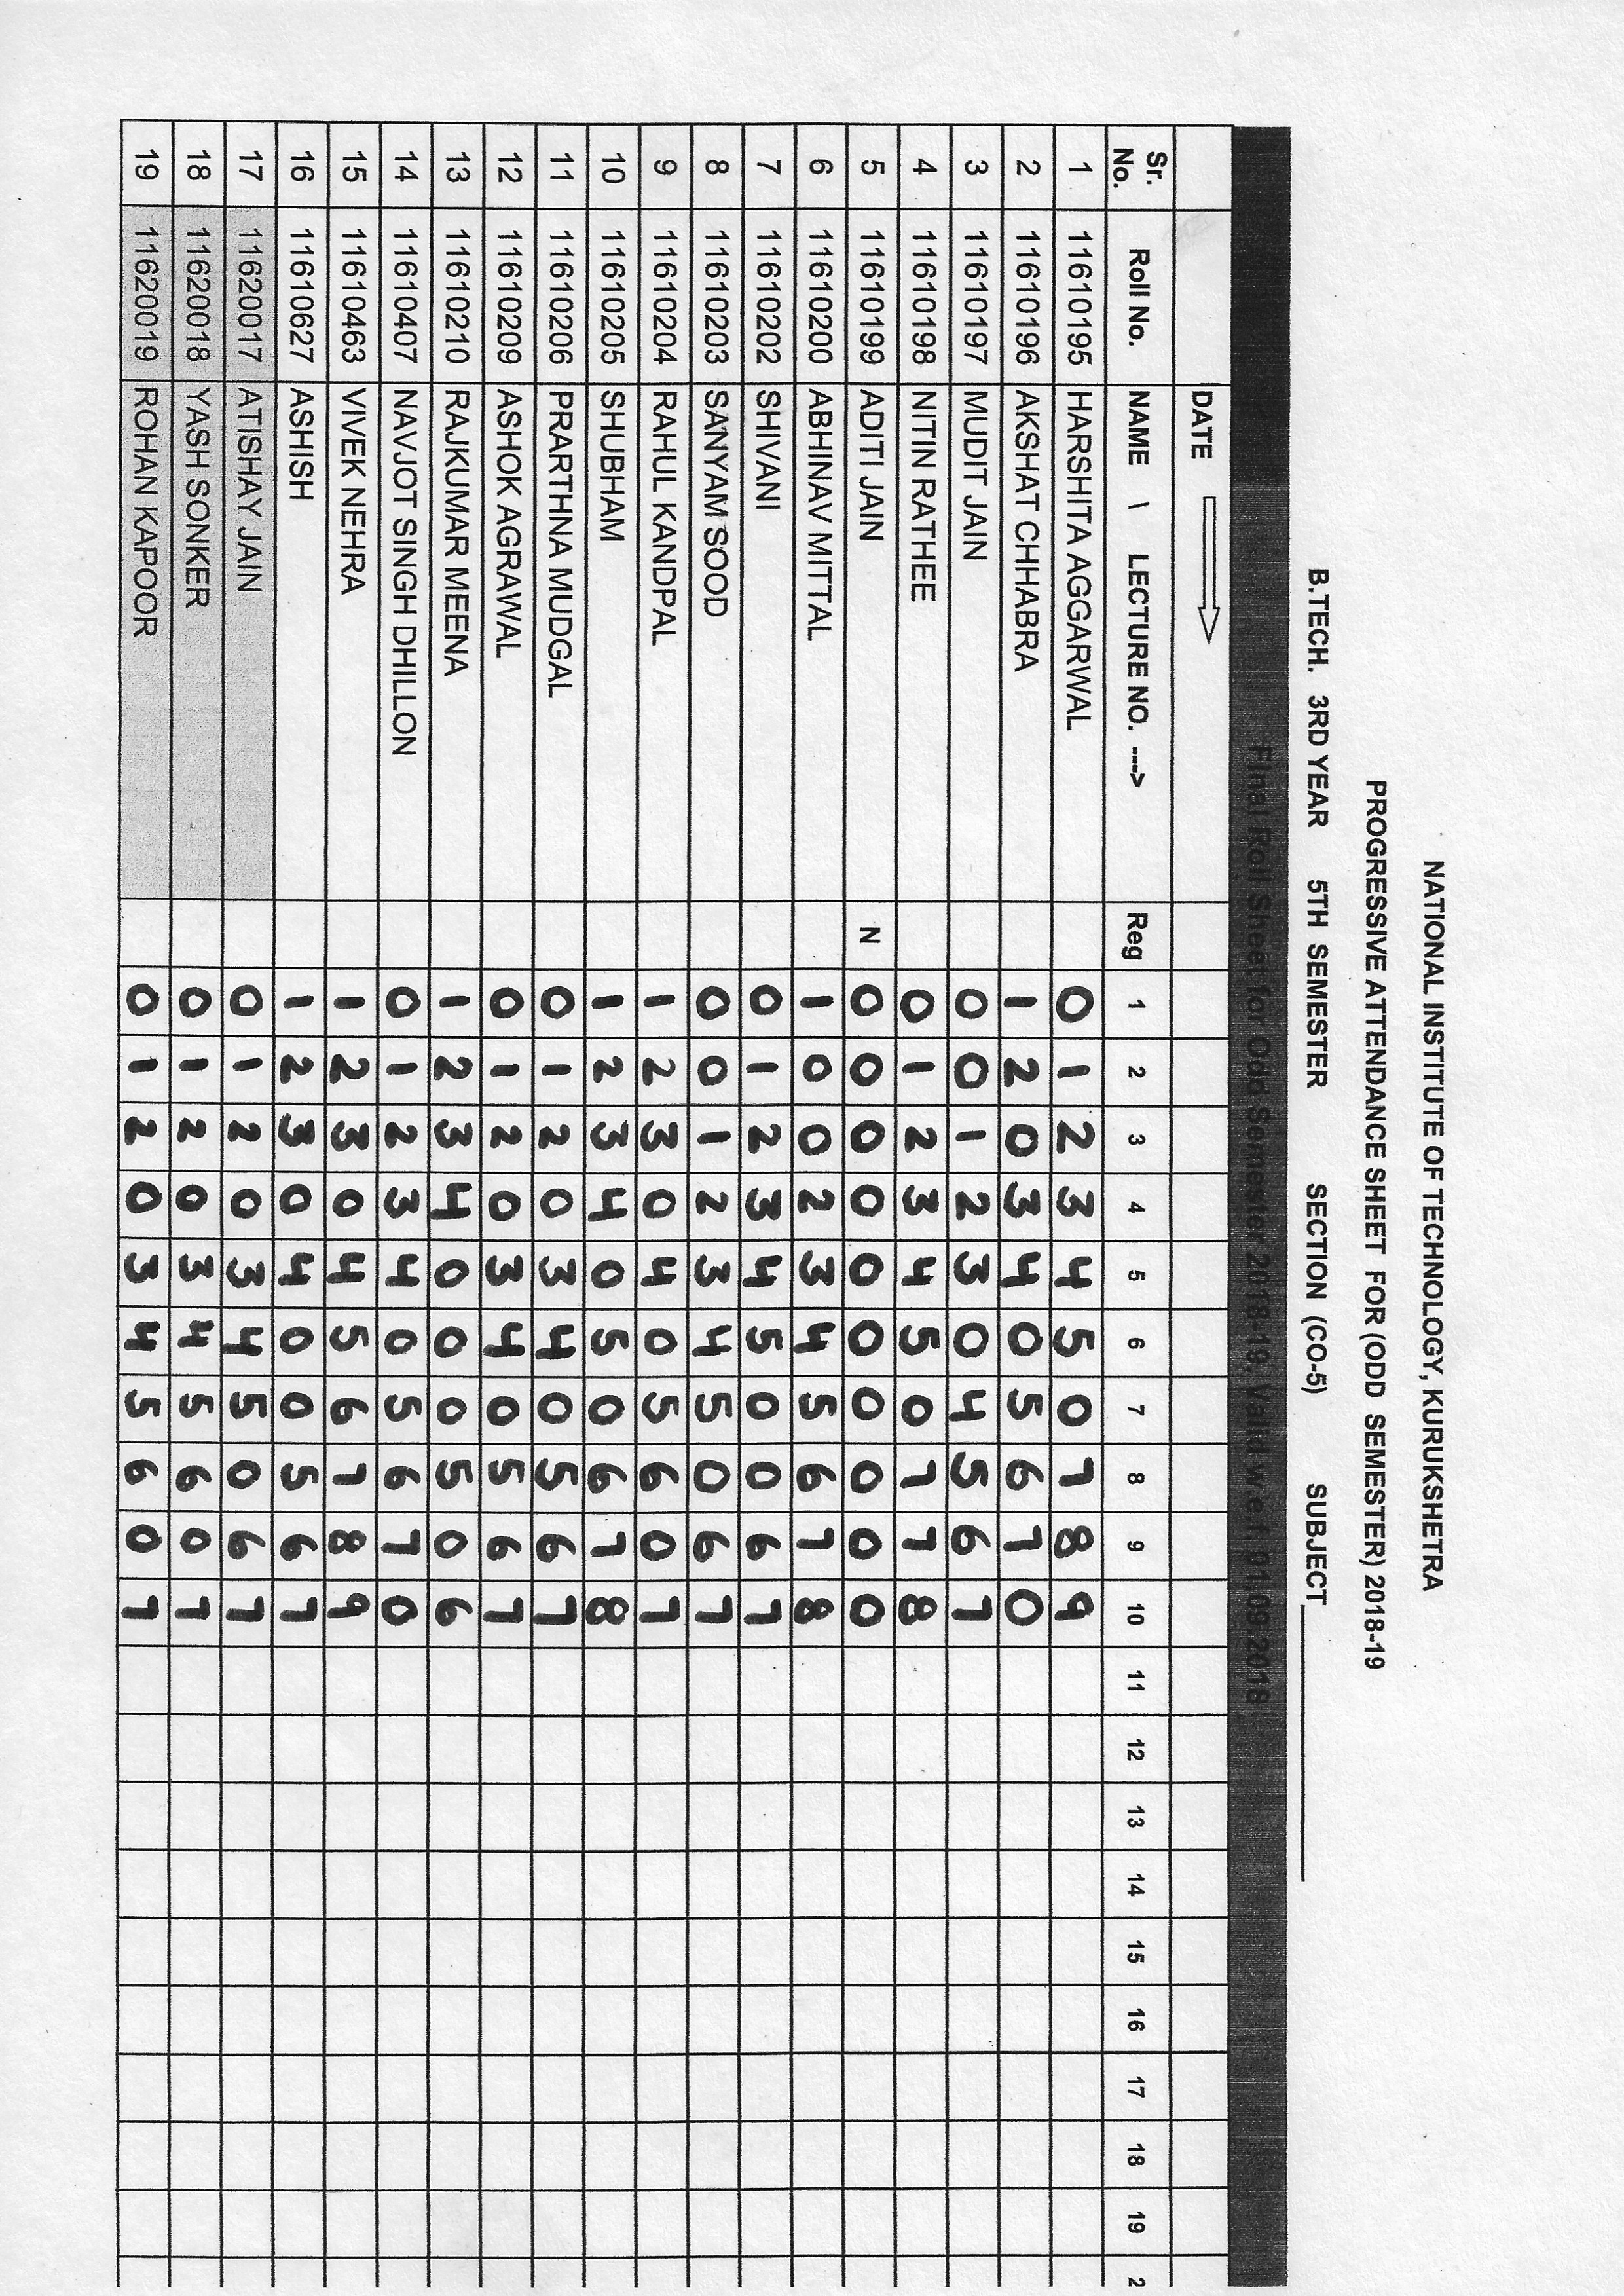 NATIONAL INSTITUTE OF TECHNOLOGY, KURUKSHETRA
PROGRESSIVE ATTENDANCE SHEET FOR (ODD SEMESTER) 2018-19
B.TECH. 3RD YEAR 5TH SEMESTER SECTION (CO-5) SUBJECT
Final Roll Sheet for Odd Semester 2018-19, Valid w.e.f. 01.09.2018
DATE
Sr. No. Roll No. NAME \ LECTURE NO. ---> Reg 1 2 3 4 5 6 7 8 9 10 11 12 13 14 15 16 17 18 19 2
1 11610195 HARSHITA AGGARWAL 0 1 2 3 4 5 0 7 8 9
2 11610196 AKSHAT CHHABRA 1 2 0 3 4 0 5 6 7 0
3 11610197 MUDIT JAIN 0 0 1 2 3 0 4 5 6 7
4 11610198 NITIN RATHEE 0 1 2 3 4 5 0 7 7 8
5 11610199 ADITI JAIN N 0 0 0 0 0 0 0 0 0 0
6 11610200 ABHINAV MITTAL 1 0 0 2 3 4 5 6 7 8
7 11610202 SHIVANI 0 1 2 3 4 5 0 0 6 7
8 11610203 SANYAM SOOD 0 0 1 2 3 4 5 0 6 7
9 11610204 RAHUL KANDPAL 1 2 3 0 4 0 5 6 0 7
10 11610205 SHUBHAM 1 2 3 4 0 5 0 6 7 8
11 11610206 PRARTHNA MUDGAL 0 1 2 0 3 4 0 5 6 7
12 11610209 ASHOK AGRAWAL 0 1 2 0 3 4 0 5 6 7
13 11610210 RAJKUMAR MEENA 1 2 3 4 0 0 0 5 0 6
14 11610407 NAVJOT SINGH DHILLON 0 1 2 3 4 0 5 6 7 0
15 11610463 VIVEK NEHRA 1 2 3 0 4 5 6 7 8 9
16 11610627 ASHISH 1 2 3 0 4 0 0 5 6 7
17 11620017 ATISHAY JAIN 0 1 2 0 3 4 5 0 6 7
18 11620018 YASH SONKER 0 1 2 0 3 4 5 6 0 7
19 11620019 ROHAN KAPOOR 0 1 2 0 3 4 5 6 0 7